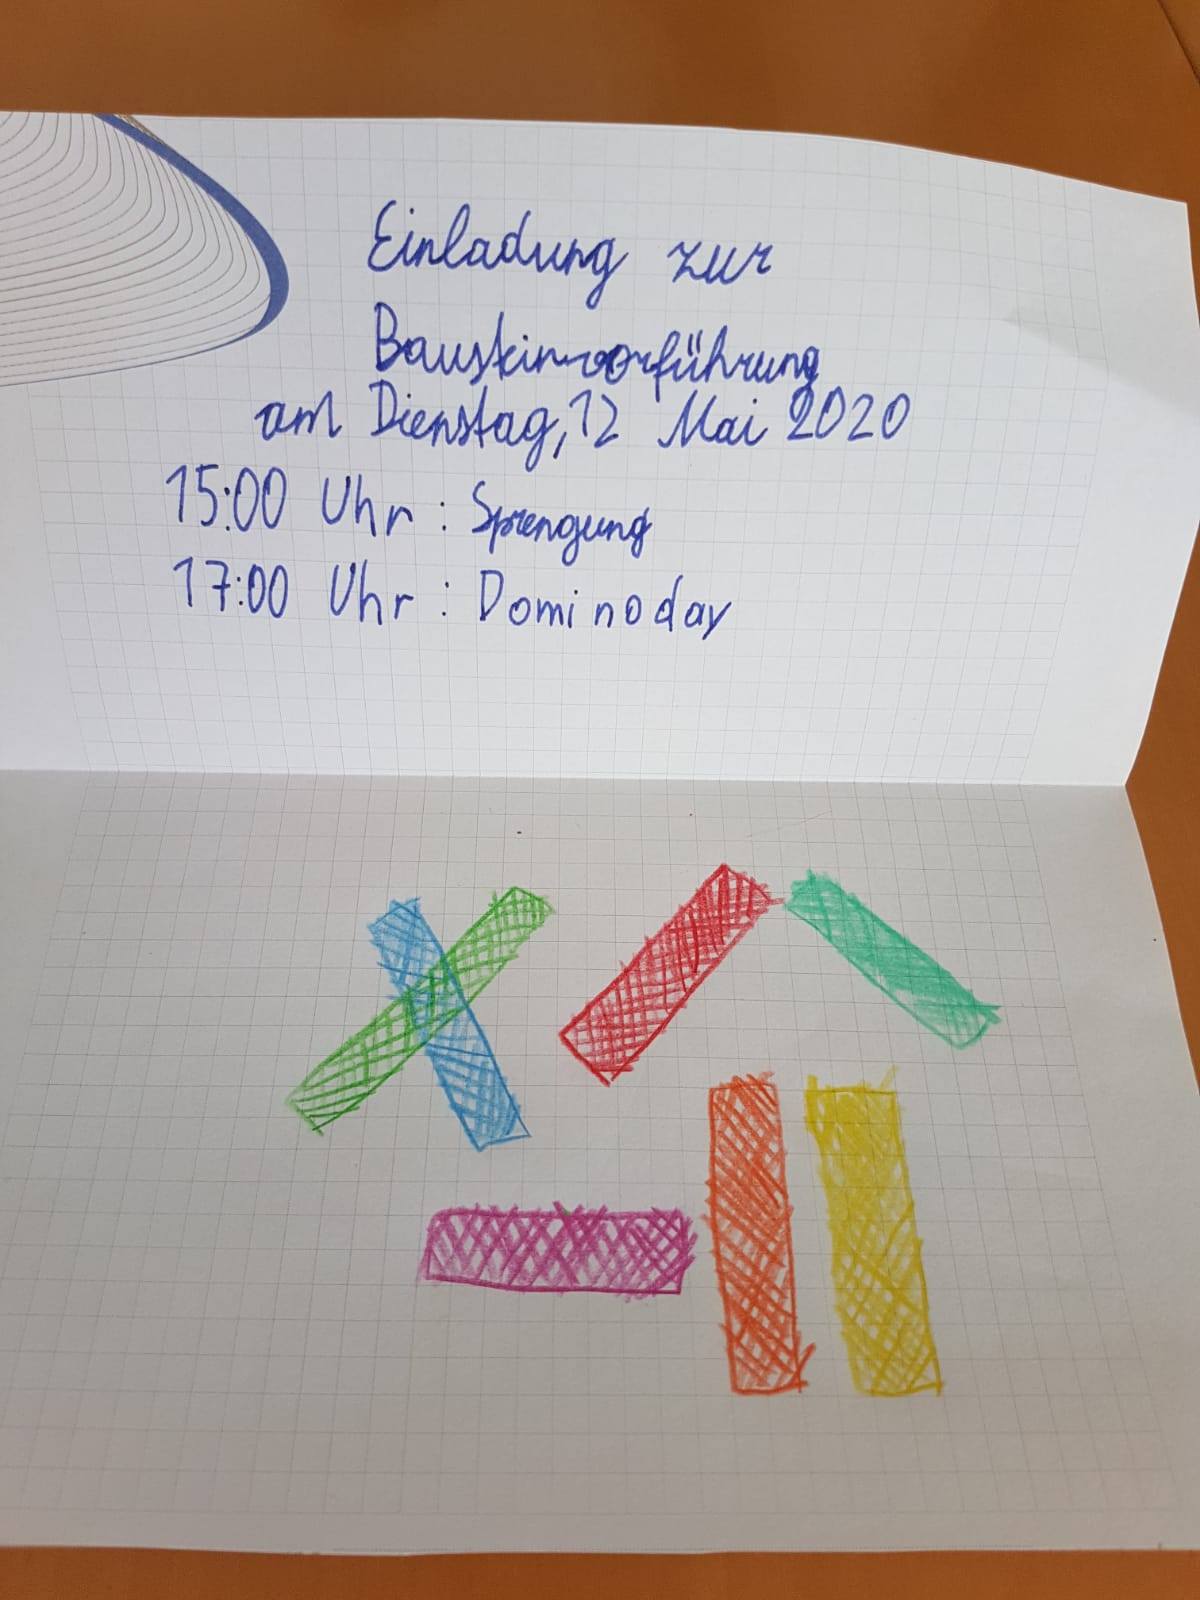 Einladung zur
Bausteinvorführung
am Dienstag, 12 Mai 2020
15:00 Uhr : Sprengung
17:00 Uhr : Dominoday